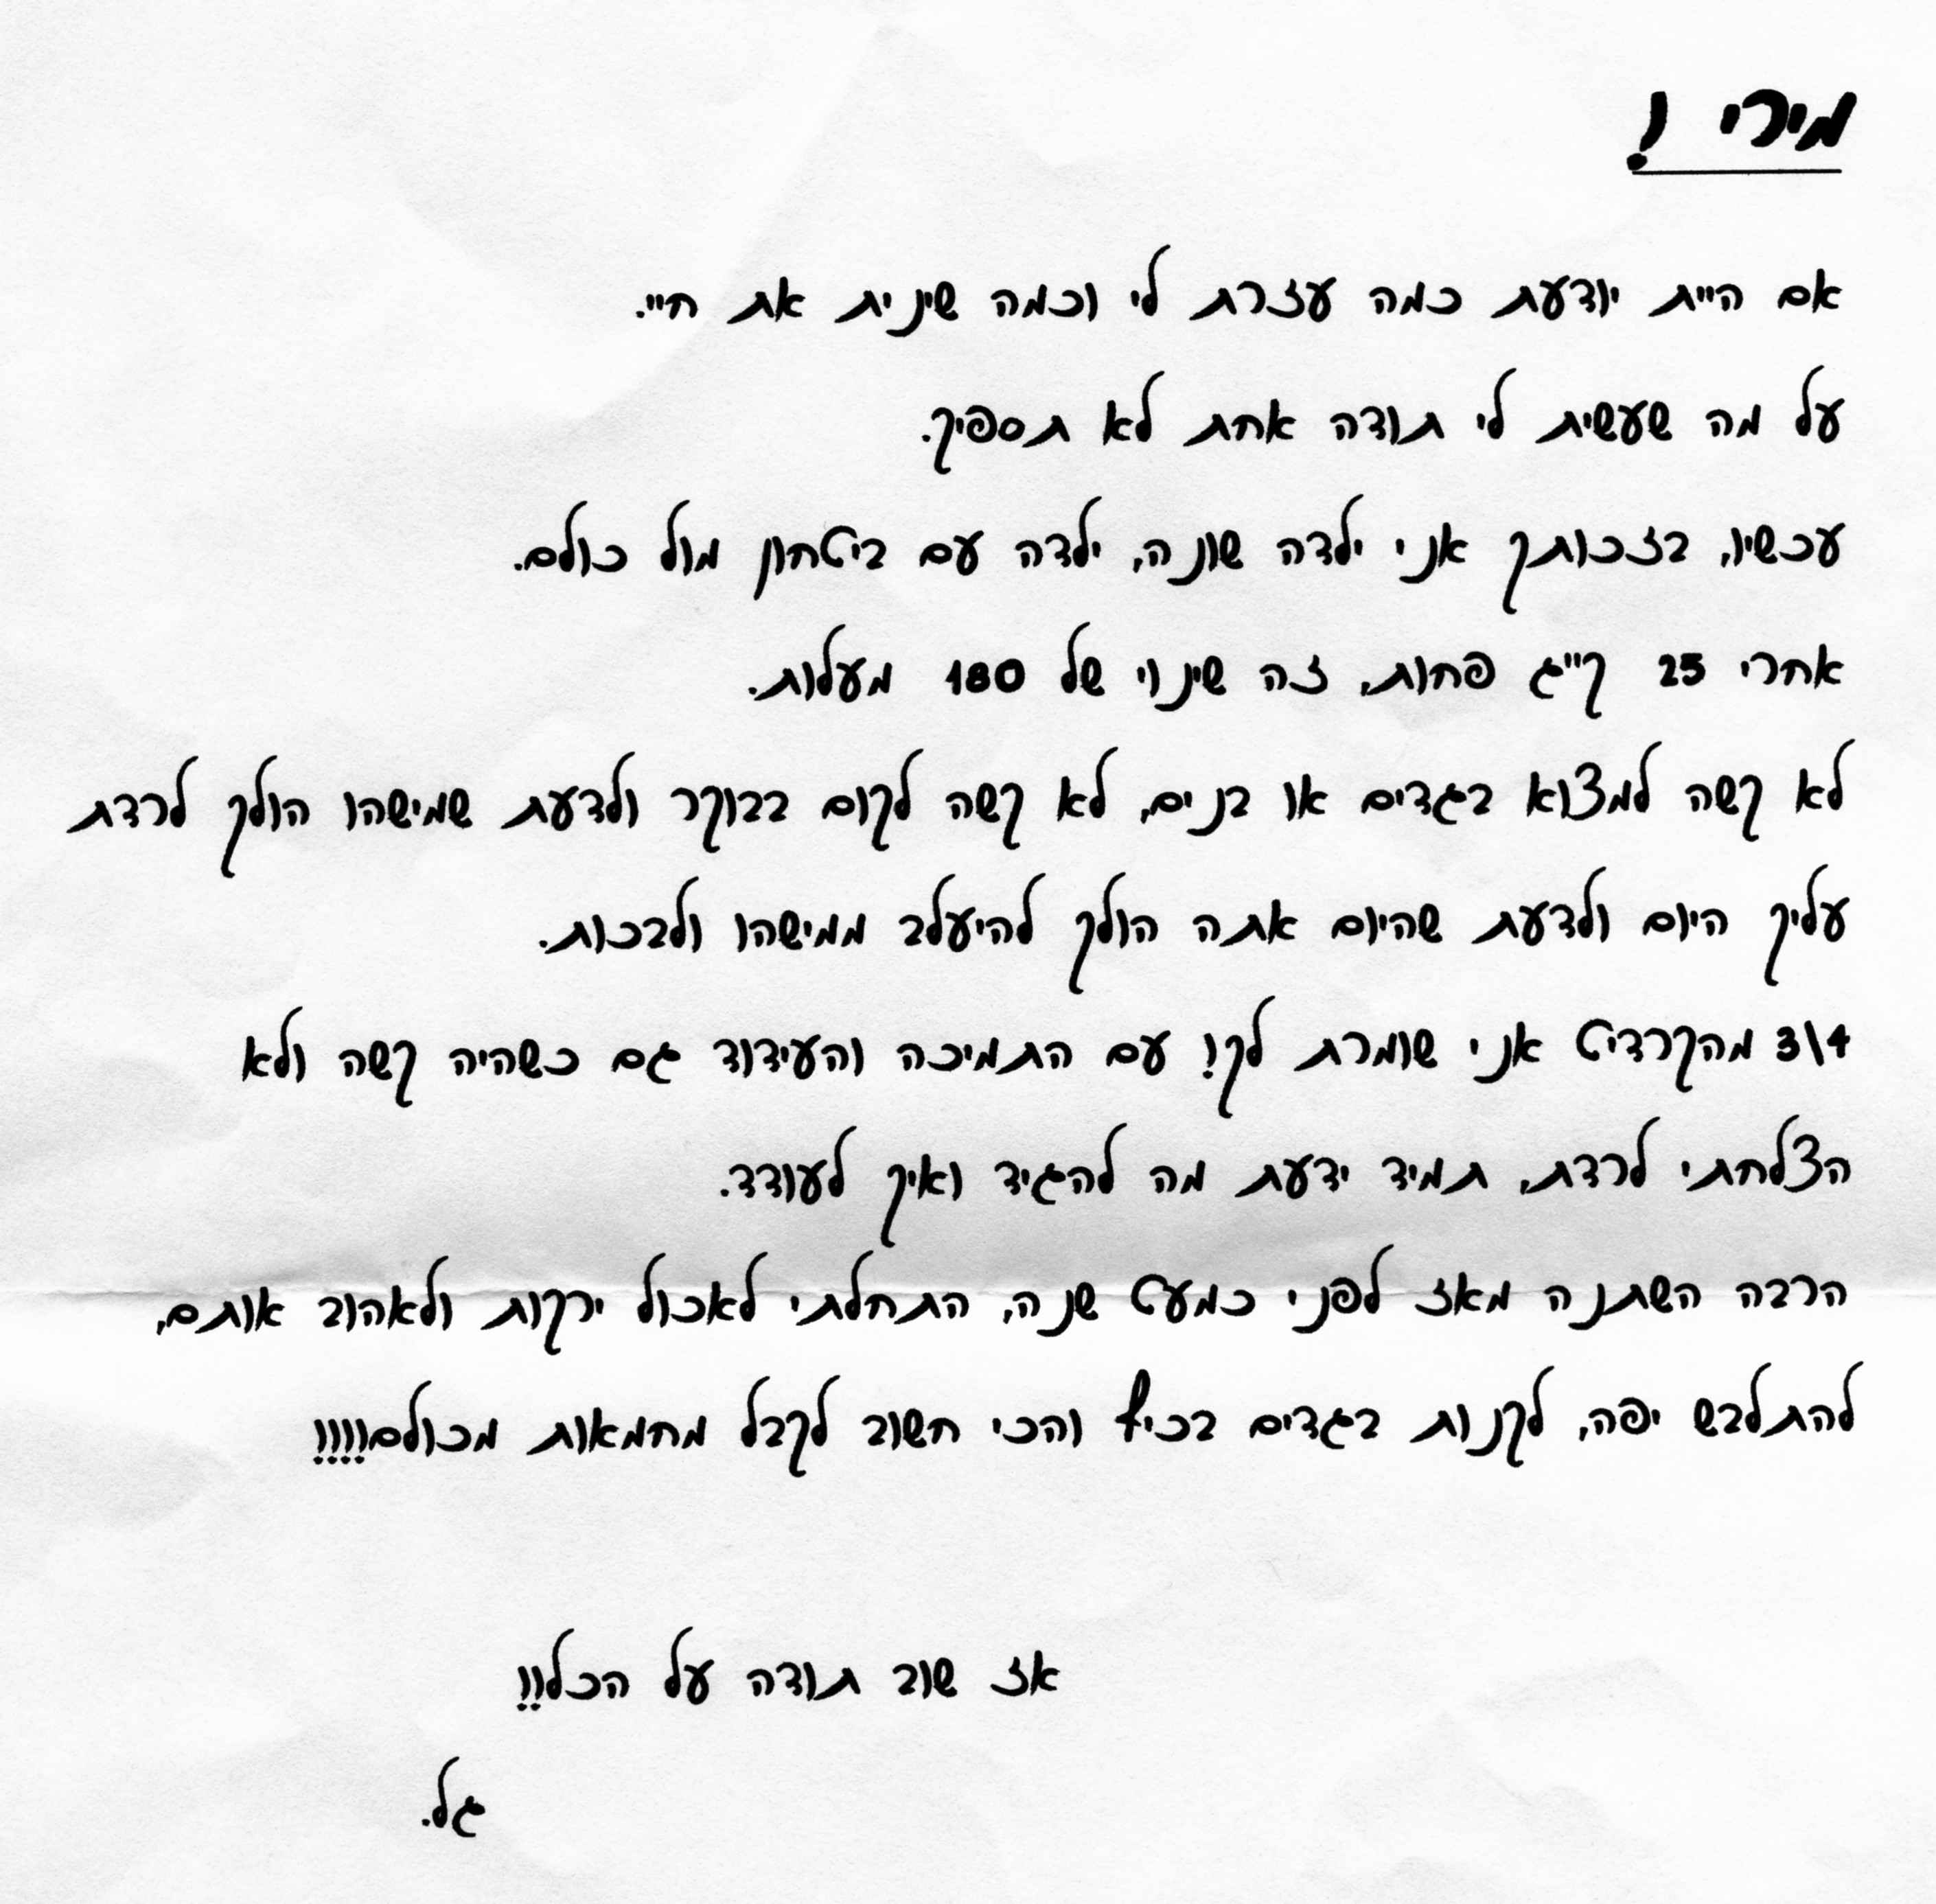 מירי !
אם היית יודעת כמה עזרת לי וכמה שינית את חיי.
על מה שעשית לי תודה אחת לא תספיק.
עכשיו, בזכותך אני ילדה שונה, ילדה עם ביטחון מול כולם.
אחרי 25 ק"ג פחות, זה שינוי של 180 מעלות.
לא קשה למצוא בגדים או בנים, לא קשה לקום בבוקר ולדעת שמישהו הולך לרדת
עליך היום ולדעת שהיום אתה הולך להיעלב ממישהו ולבכות.
3\4 מהקרדיט אני שומרת לך! עם התמיכה והעידוד גם כשהיה קשה ולא
הצלחתי לרדת, תמיד ידעת מה להגיד ואיך לעודד.
הרבה השתנה מאז לפני כמעט שנה, התחלתי לאכול ירקות ולאהוב אותם,
להתלבש יפה, לקנות בגדים בכיף והכי חשוב לקבל מחמאות מכולם!!!!
אז שוב תודה על הכל!!
גל.